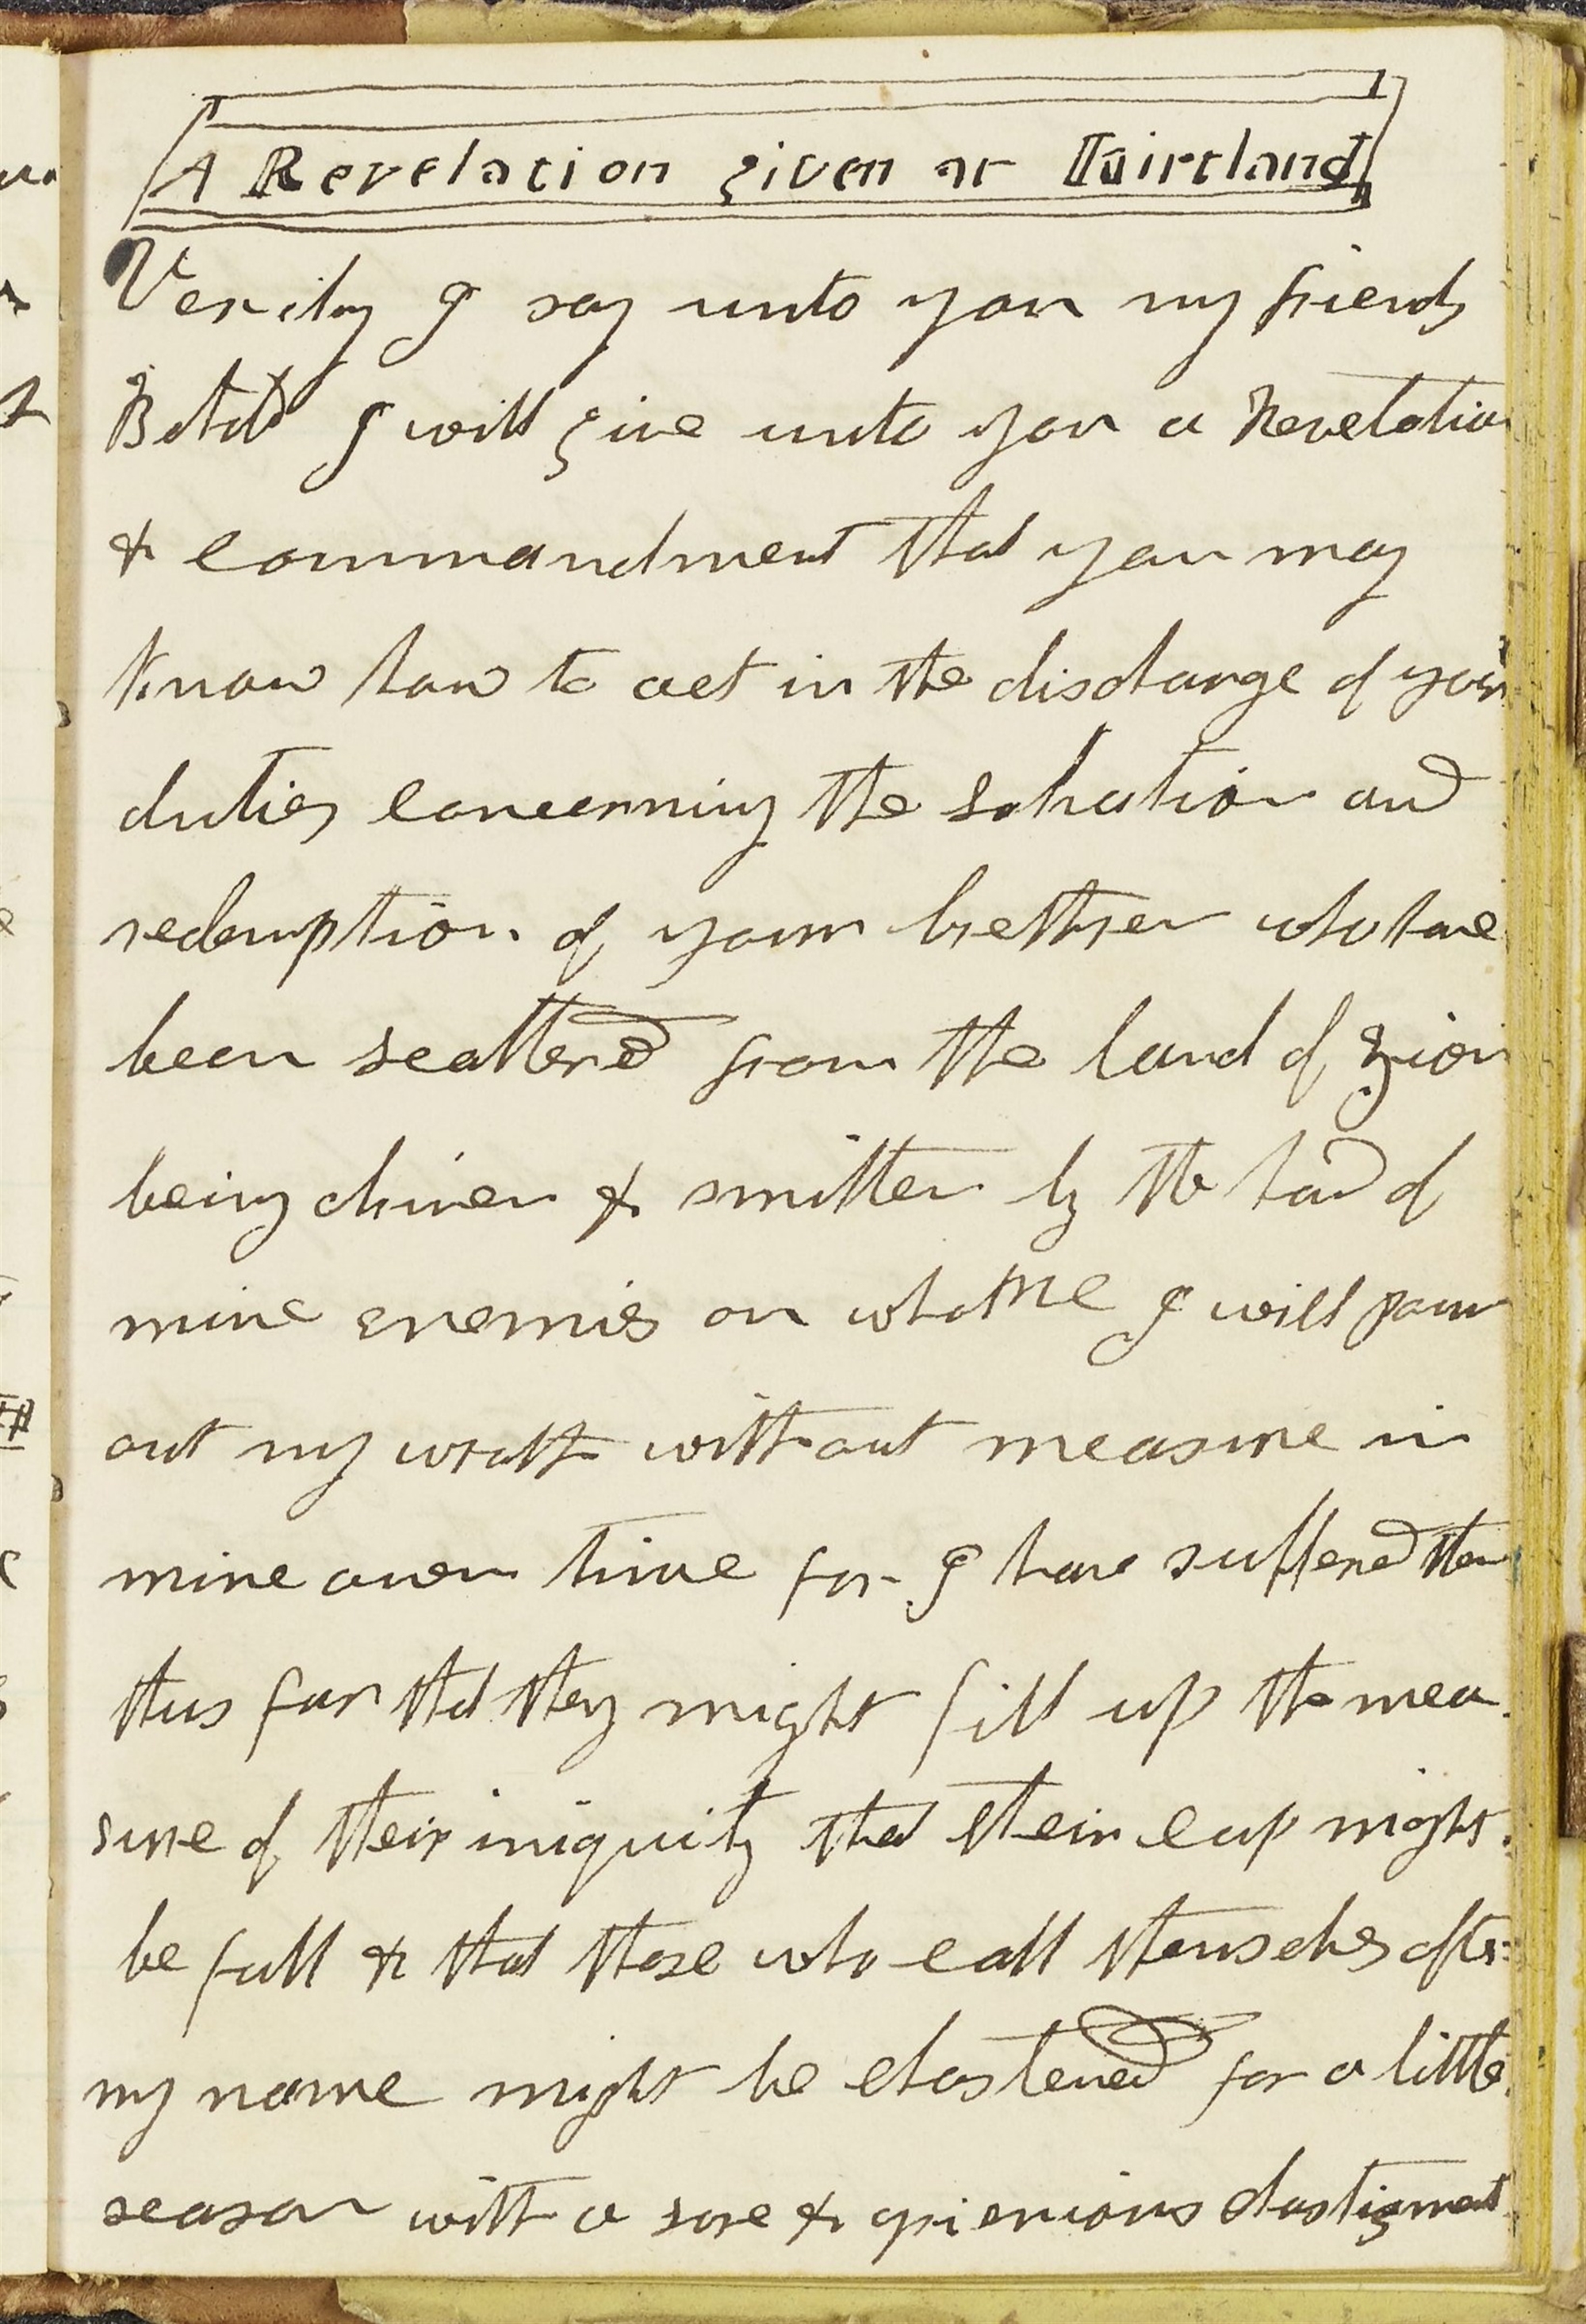 A Revelation given at Kirtland
Verily I say unto you my friends
Behold I will give unto you a Revelation
& commandment that you may
know how to act in the discharge of your
duties concerning the salvation and
redemption of your brethren who have
been scattered from the land of Zion
being driven & smitten by the hand of
mine enemies on whome I will pour
out my wrath without measure in
mine own time for I have suffered them
thus far that they might fill up the mea
sure of their iniquity that their cup might
be full & that those who call themselves after
my name might be chastened for a little
season with a sore & grievious chastizment